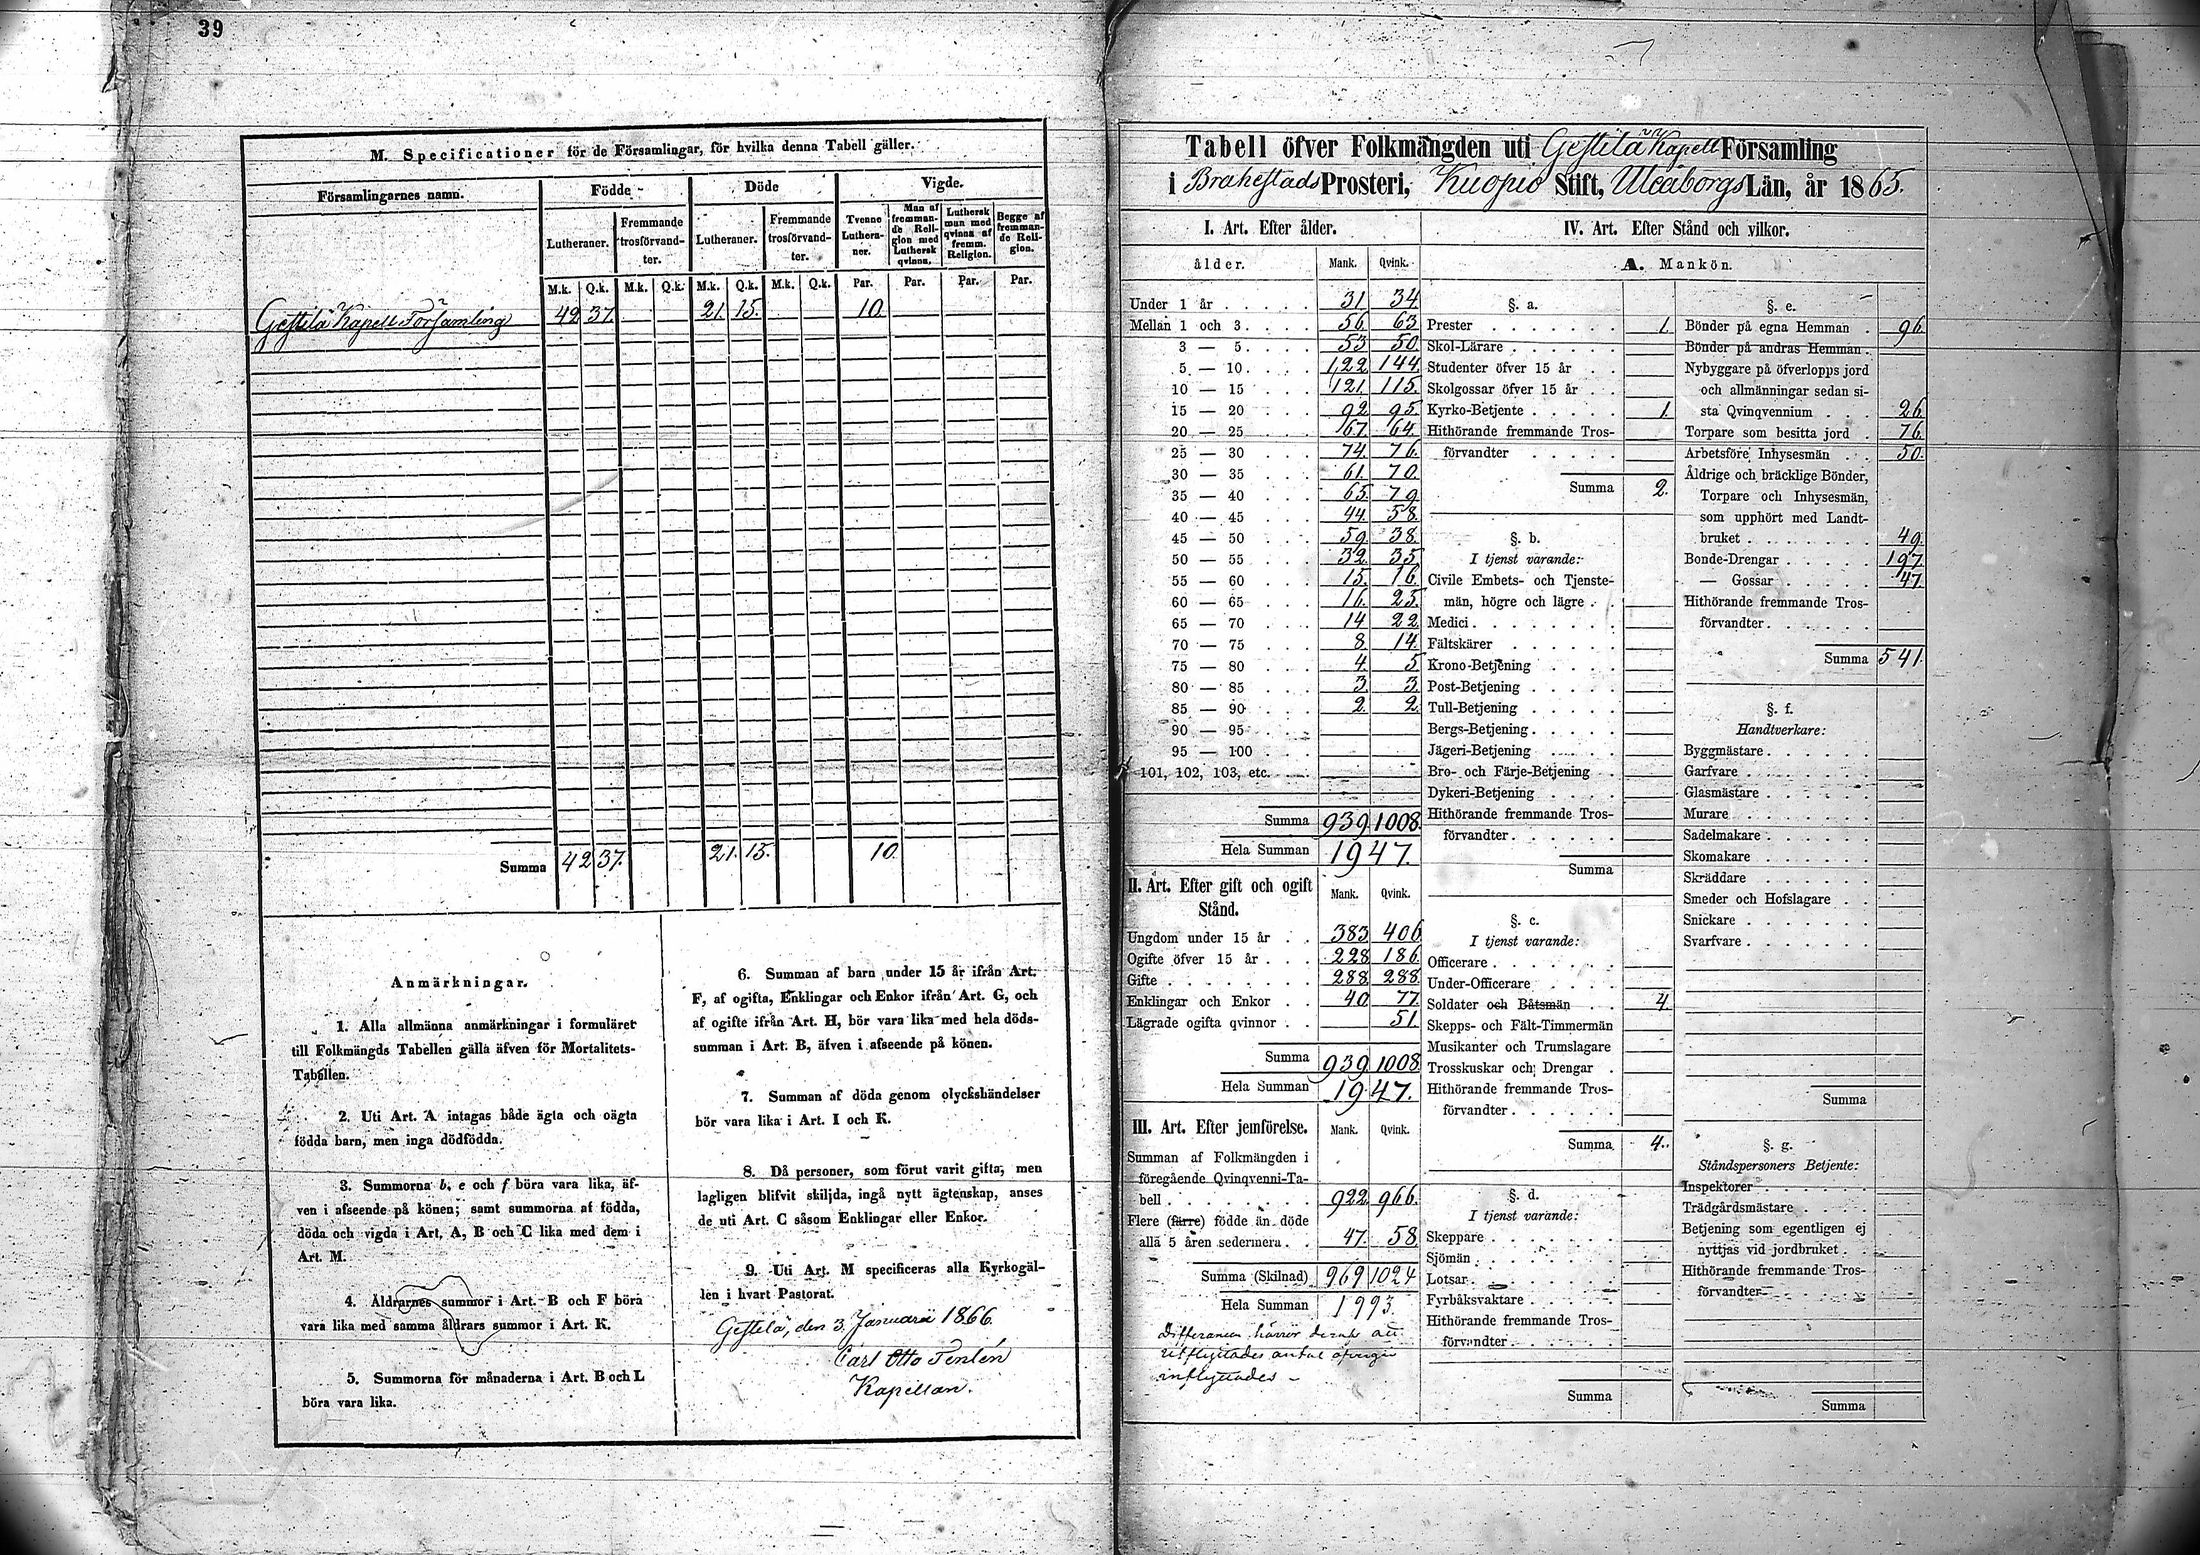 39
M. Specificationer för de Församlingar, för hvilka denna Tabell gäller.
Församlingarnes namn. Födde Döde Vigde.
Lutheraner. Fremmande trosförvandter. Lutheraner. Fremmande trosförvandter. Tvenne Lutheraner. Man af fremmande Religion med Luthersk qvinna. Luthersk man med qvinna af fremm. Religion. Begge af fremmande Religion.
M.k. Q.k. M.k. Q.k. M.k. Q.k. M.k. Q.k. Par. Par. Par. Par.
Gestilä Kapell Församling 42 37. 21. 15. 10.
Summa 42 37. 21. 15. 10.
Anmärkningar.
1. Alla allmänna anmärkningar i formuläret
till Folkmängds Tabellen gälla äfven för Mortalitets-
Tabellen.
2. Uti Art. A intagas både ägta och oägta
födda barn, men inga dödfödda.
3. Summorna b, e och f böra vara lika, äf-
ven i afseende på könen; samt summorna af födda,
döda och vigda i Art. A, B och C lika med dem i
Art. M.
4. Åldrarnes summor i Art. B och F böra
vara lika med samma åldrars summor i Art. K.
5. Summorna för månaderna i Art. B och L
böra vara lika.
6. Summan af barn under 15 år ifrån Art.
F, af ogifta, Enklingar och Enkor ifrån Art. G, och
af ogifte ifrån Art. H, bör vara lika med hela döds-
summan i Art. B, äfven i afseende på könen.
7. Summan af döda genom olyckshändelser
bör vara lika i Art. I och K.
8. Då personer, som förut varit gifta, men
lagligen blifvit skiljda, ingå nytt ägtenskap, anses
de uti Art. C såsom Enklingar eller Enkor.
9. Uti Art. M specificeras alla Kyrkogäl-
len i hvart Pastorat.
Gestilä, den 3 Januarii 1866.
Carl Otto Tenlén
Kapellan.
Tabell öfver Folkmängden uti Gestilä Kapell Församling
i Brahestads Prosteri, Kuopio Stift, Uleåborgs Län, år 1865.
I. Art. Efter ålder.
ålder. Mank. Qvink.
Under 1 år 31 34
Mellan 1 och 3 56 63
3 — 5 53 50
5 — 10 122 144
10 — 15 121 115
15 — 20 92 95
20 — 25 67 64
25 — 30 74 76
30 — 35 61 70
35 — 40 65 79
40 — 45 44 58
45 — 50 59 38
50 — 55 32 35
55 — 60 15 16
60 — 65 16 25
65 — 70 14 22
70 — 75 8 14
75 — 80 4 5
80 — 85 3 3
85 — 90 2 2
90 — 95
95 — 100
101, 102, 103, etc.
Summa 939 1008
Hela Summan 1947.
II. Art. Efter gift och ogift Stånd. Mank. Qvink.
Ungdom under 15 år 383 406
Ogifte öfver 15 år 228 186
Gifte 288 288
Enklingar och Enkor 40 77
Lägrade ogifta qvinnor 51
Summa 939 1008
Hela Summan 1947.
III. Art. Efter jemförelse. Mank. Qvink.
Summan af Folkmängden i
föregående Qvinqvenni-Ta-
bell 922 966
Flere (färre) födde än döde
alla 5 åren sedermera 47 58
Summa (Skilnad) 969 1024
Hela Summan 1993.
Differansen härrör deraf att
utflyttades antal öfverger
inflyttades
IV. Art. Efter Stånd och vilkor.
A. Mankön.
§. a.
Prester 1.
Skol-Lärare
Studenter öfver 15 år
Skolgossar öfver 15 år
Kyrko-Betjente 1.
Hithörande fremmande Tros-
förvandter
Summa 2.
§. b.
I tjenst varande:
Civile Embets- och Tjenste-
män, högre och lägre
Medici
Fältskärer
Krono-Betjening
Post-Betjening
Tull-Betjening
Bergs-Betjening
Jägeri-Betjening
Bro- och Färje-Betjening
Dykeri-Betjening
Hithörande fremmande Tros-
förvandter
Summa
§. c.
I tjenst varande:
Officerare
Under-Officerare
Soldater och Båtsmän 4.
Skepps- och Fält-Timmermän
Musikanter och Trumslagare
Trosskuskar och Drengar
Hithörande fremmande Tros-
förvandter
Summa 4.
§. d.
I tjenst varande:
Skeppare
Sjömän
Lotsar
Fyrbåksvaktare
Hithörande fremmande Tros-
förvandter
Summa
§. e.
Bönder på egna Hemman 96
Bönder på andras Hemman
Nybyggare på öfverlopps jord
och allmänningar sedan si-
sta Qvinqvennium 26
Torpare som besitta jord 76
Arbetsföre Inhysesmän 50
Åldrige och bräcklige Bönder,
Torpare och Inhysesmän,
som upphört med Landt-
bruket 49
Bonde-Drengar 197
— Gossar 47
Hithörande fremmande Tros-
förvandter
Summa 541.
§. f.
Handtverkare:
Byggmästare
Garfvare
Glasmästare
Murare
Sadelmakare
Skomakare
Skräddare
Smeder och Hofslagare
Snickare
Svarfvare
Summa
§. g.
Ståndspersoners Betjente:
Inspektorer
Trädgårdsmästare
Betjening som egentligen ej
nyttjas vid jordbruket
Hithörande fremmande Tros-
förvandter
Summa